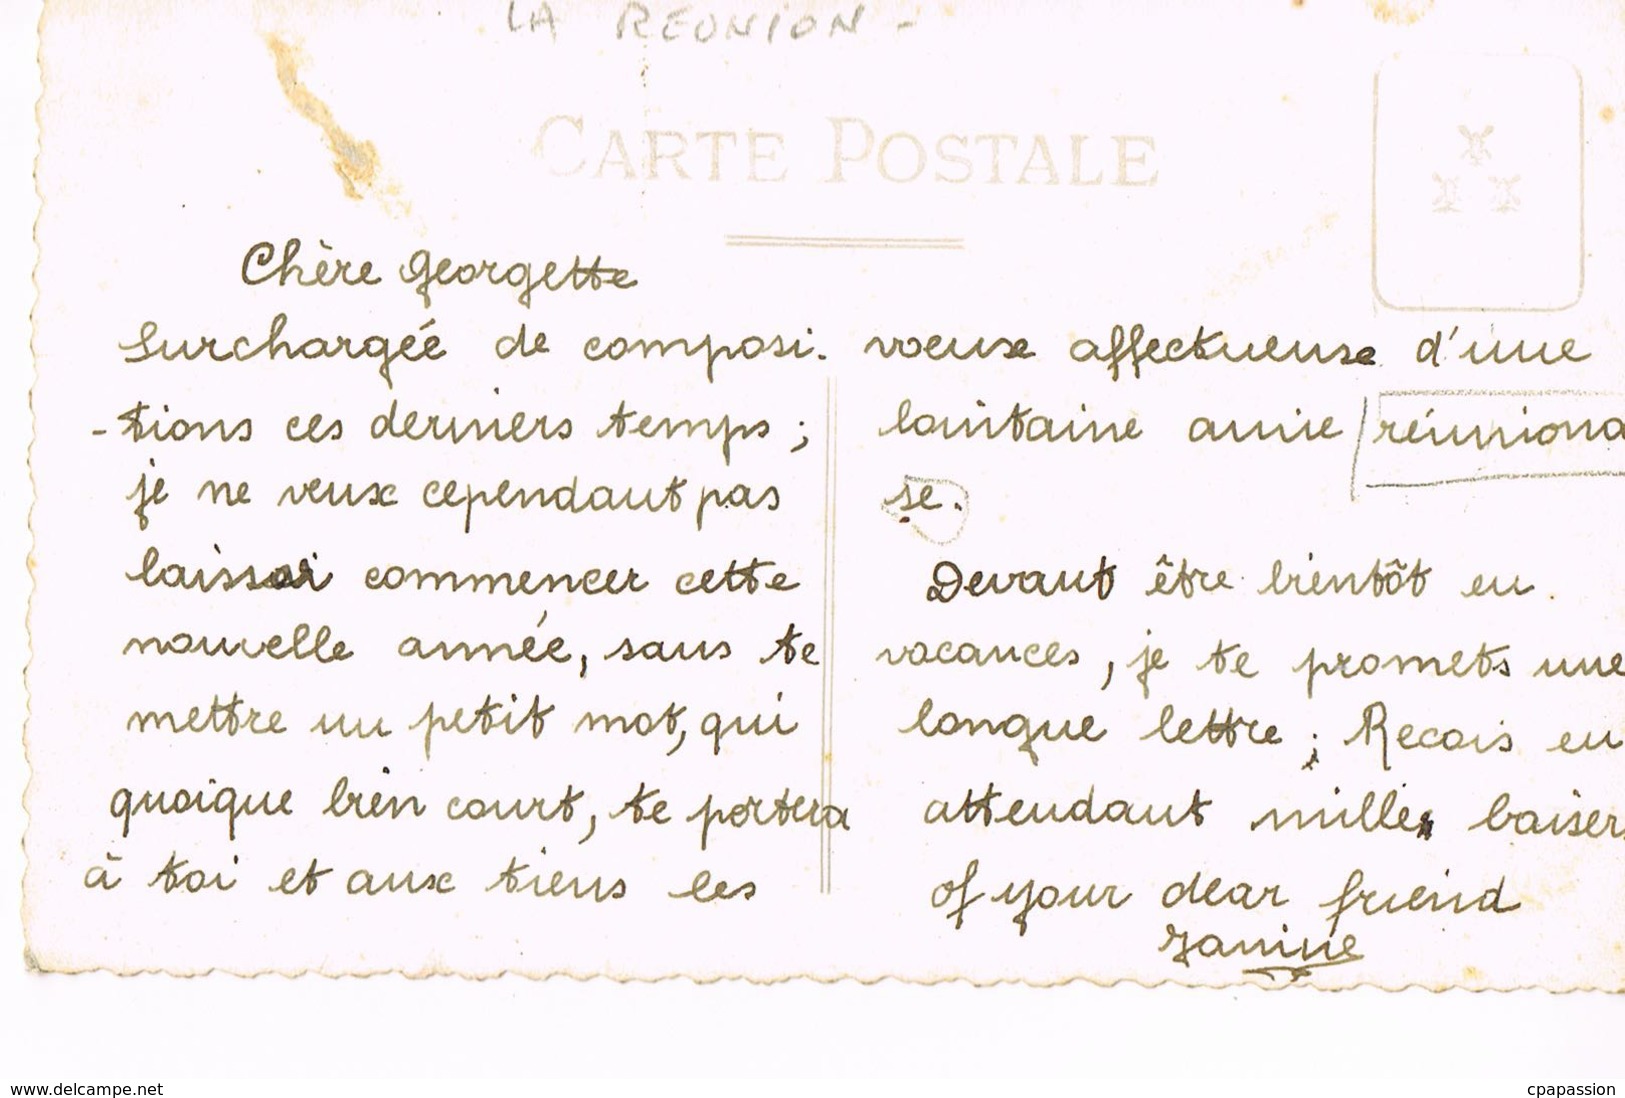 LA REUNION -
CARTE POSTALE
Chère Georgette
Surchargée de composi-
-tions ces derniers temps ;
je ne veux cependant pas
laisser commencer cette
nouvelle année, sans te
mettre un petit mot, qui
quoique bien court, te portera
à toi et aux tiens les
voeux affectueuse d'une
lointaine amie réuniona
se.
Devant être bientôt en
vacances, je te promets une
longue lettre ; Recois en
attendant mille baisers
of your dear friend
Janine
www.delcampe.net
cpapassion